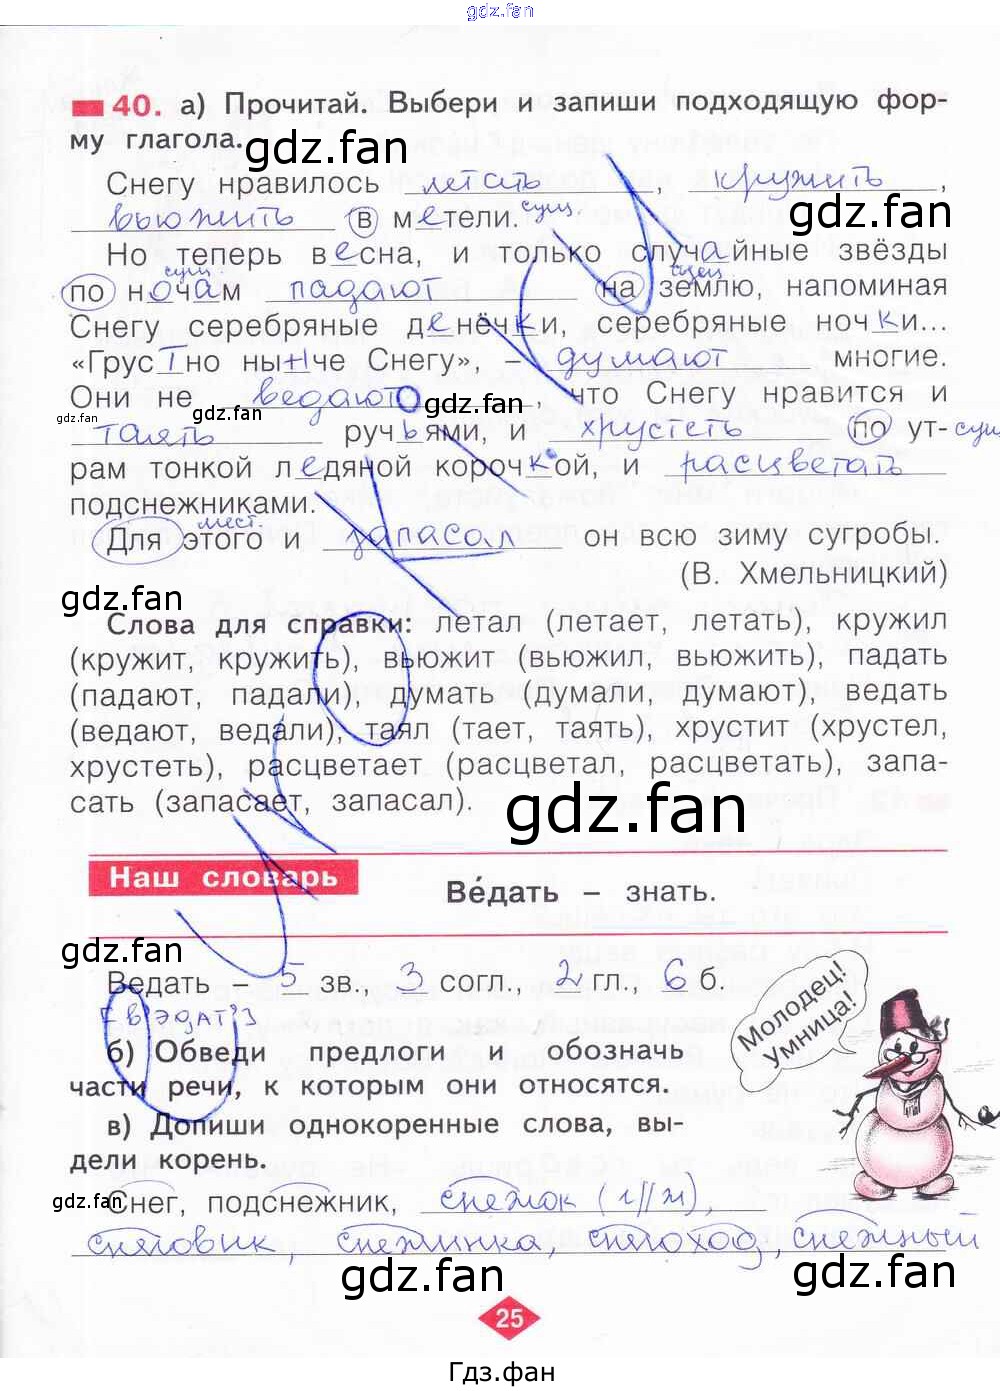 gdz.fan
40. а) Прочитай. Выбери и запиши подходящую фор-
му глагола.
gdz.fan
Снегу нравилось летать, кружить,
gdz.fan
вьюжить в метели. сущ
Но теперь весна, и только случайные звёзды
сущ. сущ
по ночам падают на землю, напоминая
Снегу серебряные денёчки, серебряные ночки...
«Грустно нынче Снегу», – думают многие.
Они не ведают, что Снегу нравится и
gdz.fan gdz.fan gdz.fan
таять ручьями, и хрустеть по ут- сущ
рам тонкой ледяной корочкой, и расцветать
подснежниками.
мест.
Для этого и запасал он всю зиму сугробы.
(В. Хмельницкий)
gdz.fan gdz.fan
Слова для справки: летал (летает, летать), кружил
(кружит, кружить), вьюжит (вьюжил, вьюжить), падать
(падают, падали), думать (думали, думают), ведать
(ведают, ведали), таял (тает, таять), хрустит (хрустел,
хрустеть), расцветает (расцветал, расцветать), запа-
сать (запасает, запасал).
gdz.fan
Наш словарь
Ве́дать – знать.
gdz.fan
Ведать – 5 зв., 3 согл., 2 гл., 6 б.
[В'ЭДАТ']
Молодец!
Умница!
б) Обведи предлоги и обозначь
части речи, к которым они относятся.
в) Допиши однокоренные слова, вы-
дели корень.
gdz.fan gdz.fan
Снег, подснежник, снежок (г//ж),
снеговик, снежинка, снегоход, снежный
gdz.fan gdz.fan
25
Гдз.фан